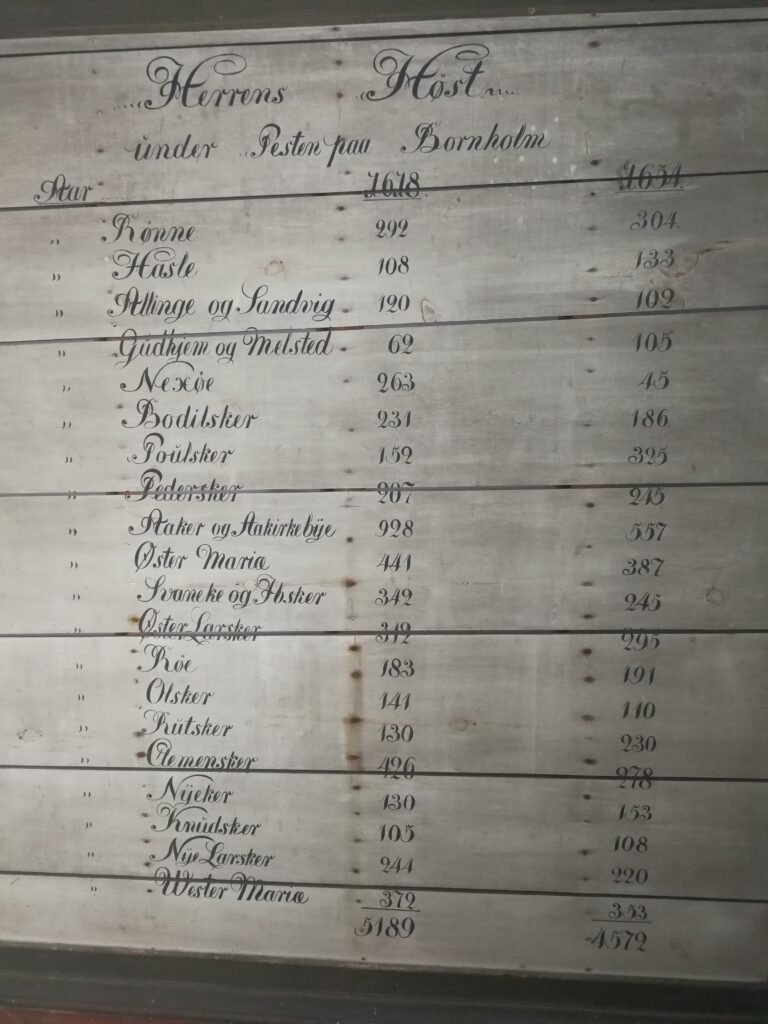 Herrens Høst
under Pesten paa Bornholm
Aar 1618 1654
„ Rønne 292 304
„ Hasle 108 133
„ Allinge og Sandvig 120 102
„ Gudhjem og Melsted 62 105
„ Nexøe 263 45
„ Bodilsker 231 186
„ Poulsker 152 325
„ Pedersker 207 245
„ Aaker og Aakirkebÿe 928 557
„ Øster Mariæ 441 387
„ Svaneke og Ibsker 342 245
„ Øster Larsker 312 295
„ Røe 183 191
„ Olsker 141 110
„ Rutsker 130 230
„ Clemensker 426 278
„ Nÿeker 130 153
„ Knudsker 105 108
„ Nÿe Larsker 244 220
„ Wester Mariæ 372 353
5189 4572